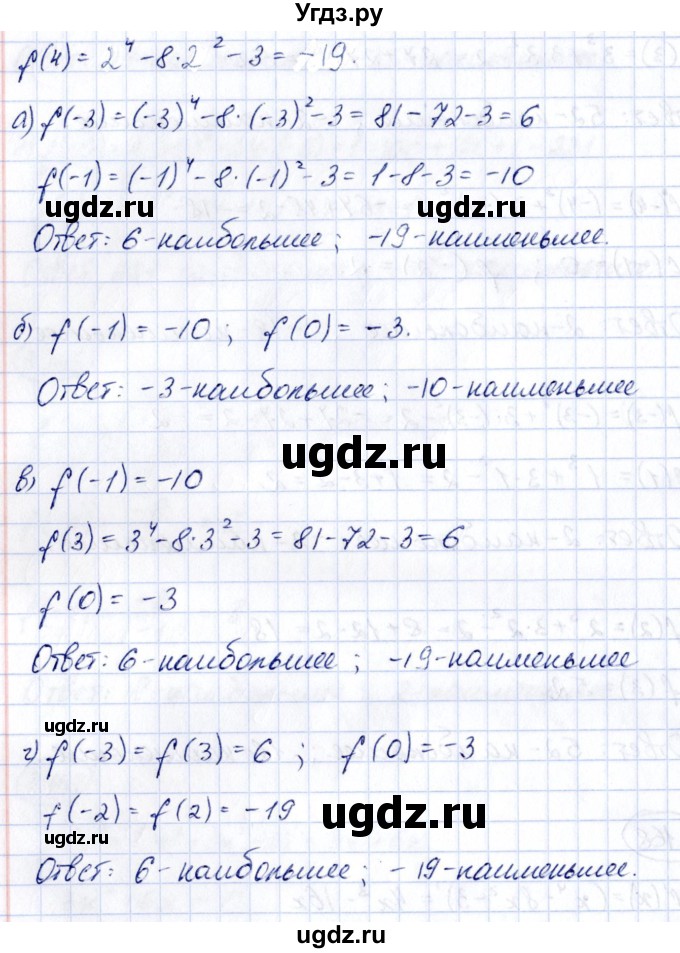 Угдз.ру
f(4) = 2⁴ - 8·2² - 3 = -19.
а) f(-3) = (-3)⁴ - 8·(-3)² - 3 = 81 - 72 - 3 = 6
f(-1) = (-1)⁴ - 8·(-1)² - 3 = 1 - 8 - 3 = -10
ugdz.ru ugdz.ru
Ответ: 6 - наибольшее; -19 - наименьшее.
б) f(-1) = -10; f(0) = -3.
Ответ: -3 - наибольшее; -10 - наименьшее
ugdz.ru
в) f(-1) = -10
f(3) = 3⁴ - 8·3² - 3 = 81 - 72 - 3 = 6
f(0) = -3
Ответ: 6 - наибольшее; -19 - наименьшее
ugdz.ru
г) f(-3) = f(3) = 6; f(0) = -3
f(-2) = f(2) = -19
ugdz.ru
ugdz.ru
Ответ: 6 - наибольшее; -19 - наименьшее.
ugdz.ru